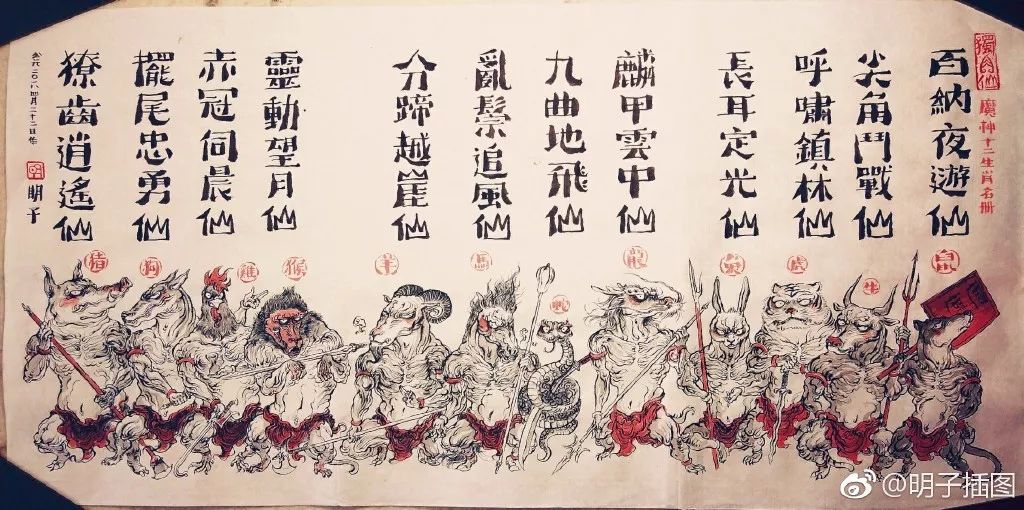 獨角仙
魔神十二生肖名册
百納夜遊仙
尖角鬥戰仙
呼嘯鎮林仙
長耳定光仙
麟甲雲中仙
九曲地飛仙
亂鬃追風仙
分蹄越崖仙
靈動望月仙
赤冠伺晨仙
擺尾忠勇仙
獠齒逍遙仙
明子
鼠
牛
虎
龍
蛇
馬
羊
猴
雞
狗
猪
@明子插图